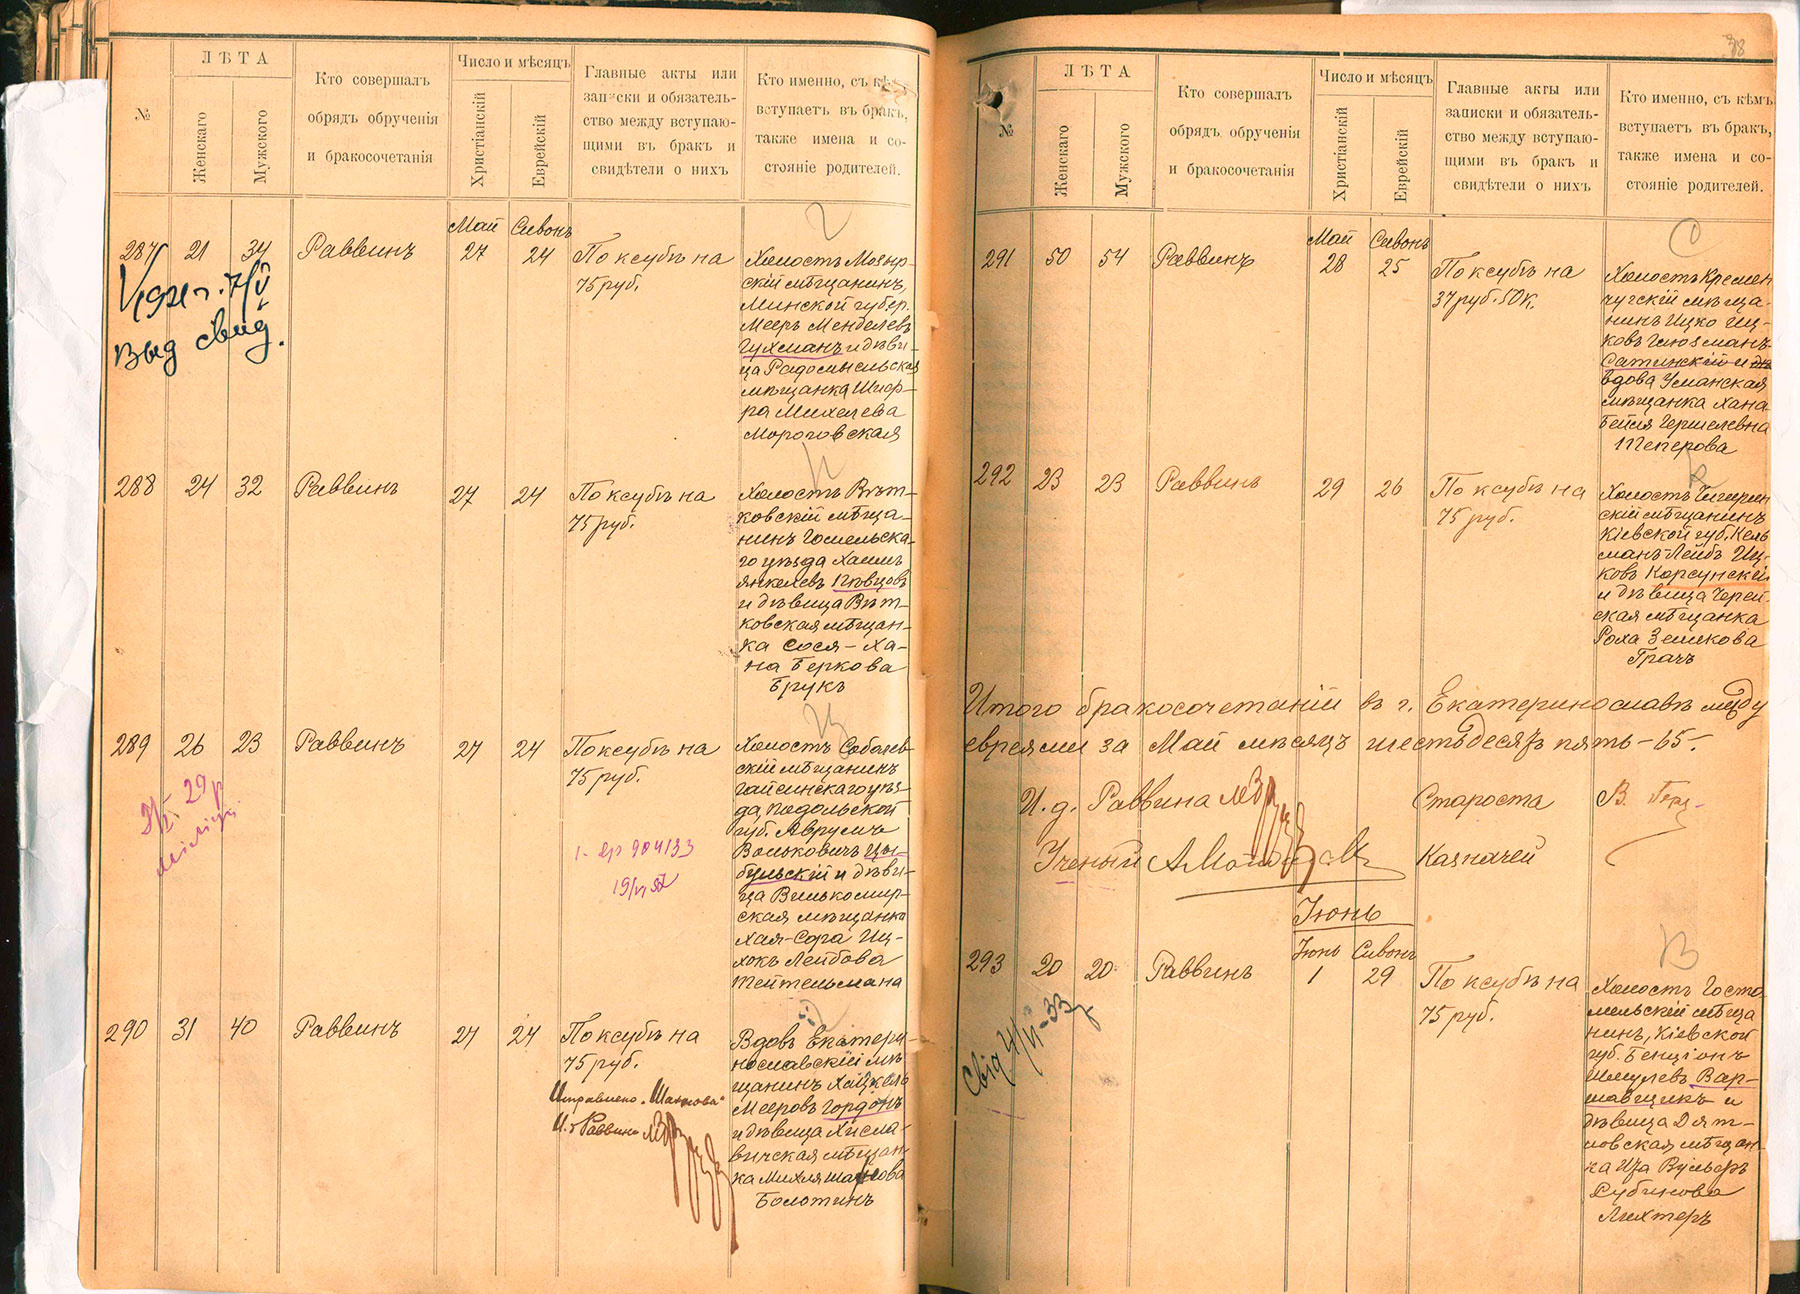 №
ЛѢТА
Женскаго
Мужского
Кто совершалъ
обрядъ обрученія
и бракосочетанія
Число и мѣсяцъ
Христіанскій
Еврейскій
Главные акты или
записки и обязатель-
ство между вступаю-
щими въ бракъ и
свидѣтели о нихъ
Кто именно, съ кѣмъ
вступаетъ въ бракъ,
также имена и со-
стояніе родителей.
Май Сивонъ
287 21 34 Раввинъ 27 24 По ксубѣ на
75 руб.
Холостъ Мозыр-
скій мѣщанинъ,
Минской губер.
Мееръ Менделевъ
Гухманъ и дѣви-
ца Радомысльская
мѣщанка Шиф-
ра Михелева
Мороговская
выд свид.
288 24 32 Раввинъ 27 24 По ксубѣ на
75 руб.
Холостъ Вѣт-
ковскій мѣща-
нинъ Гомельска-
го уѣзда Хаимъ
Янкелевъ Пѣвцовъ
и дѣвица Вѣт-
ковская мѣщан-
ка Сося-Ха-
на Беркова
Брукъ
289 26 23 Раввинъ 27 24 По ксубѣ на
75 руб.
Холостъ Соболев-
скій мѣщанинъ
Гайсинскаго уѣз-
да, Подольской
губ. Аврумъ
Вольковичъ Цы-
бульскій и дѣви-
ца Вилькомир-
ская мѣщанка
Хая-Сора Иц-
хокъ Лейбова
Тейтельмана
290 31 40 Раввинъ 27 24 По ксубѣ на
75 руб.
Исправлено "Шахнова"
И. д. Раввина
Вдовъ Екатери-
нославскій мѣ-
щанинъ Хацкель
Мееровъ Гордонъ
и дѣвица Хисла-
вичская мѣщан-
ка Михля Шахнова
Болотинъ
38
№
ЛѢТА
Женскаго
Мужского
Кто совершалъ
обрядъ обрученія
и бракосочетанія
Число и мѣсяцъ
Христіанскій
Еврейскій
Главные акты или
записки и обязатель-
ство между вступаю-
щими въ бракъ и
свидѣтели о нихъ
Кто именно, съ кѣмъ
вступаетъ въ бракъ,
также имена и со-
стояніе родителей.
Май Сивонъ
291 50 54 Раввинъ 28 25 По ксубѣ на
37 руб. 50 к.
Холостъ Кремен
чугскій мѣща-
нинъ Ицко Иц-
ковъ Глозманъ-
Сатинскій и
вдова Уманская
мѣщанка Хана
Бейля Гершелевна
Теперова
292 23 23 Раввинъ 29 26 По ксубѣ на
75 руб.
Холостъ Чигирин
скій мѣщанинъ
Кіевской губ. Кель
манъ-Лейбъ Иц-
ковъ Корсунскій
и дѣвица Черей-
ская мѣщанка
Роха Зеликова
Грачъ
Итого бракосочетаній въ г. Екатеринославѣ между
евреями за Май мѣсяцъ шестьдесятъ пять - 65.
И. д. Раввина Староста В.
Ученый Казначей
Іюнь
Іюнь Сивонъ
293 20 20 Раввинъ 1 29 По ксубѣ на
75 руб.
Холостъ Госто
мельскій мѣща
нинъ, Кіевской
губ. Бенціонъ
Шмулевъ Вар-
шавщикъ и
дѣвица Дят-
ловская мѣщан-
ка Ита Вульфъ
Рубинова
Лихтеръ